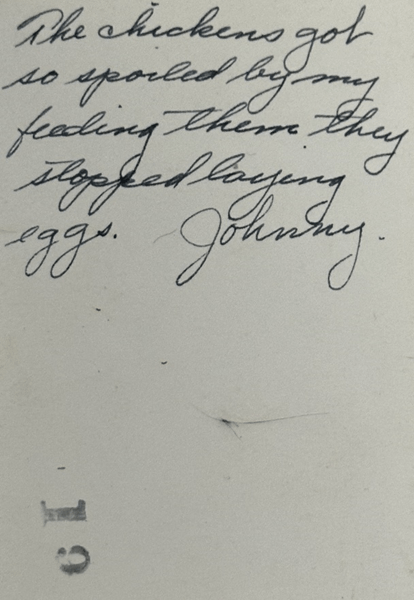 The chickens got
so spoiled by my
feeding them they
stopped laying
eggs. Johnny.